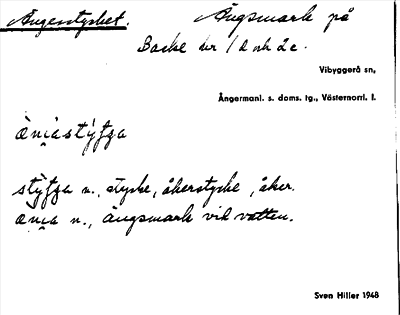 Ängesstycket. Ängsmark på
Backe nr 1 d och 2 c.
Vibyggerå sn,
Ångermanl. s. doms. tg., Västernorrl. l.
stycke, åkerstycke, åker.
n., ängsmark vid vatten.
Sven Hiller 1948